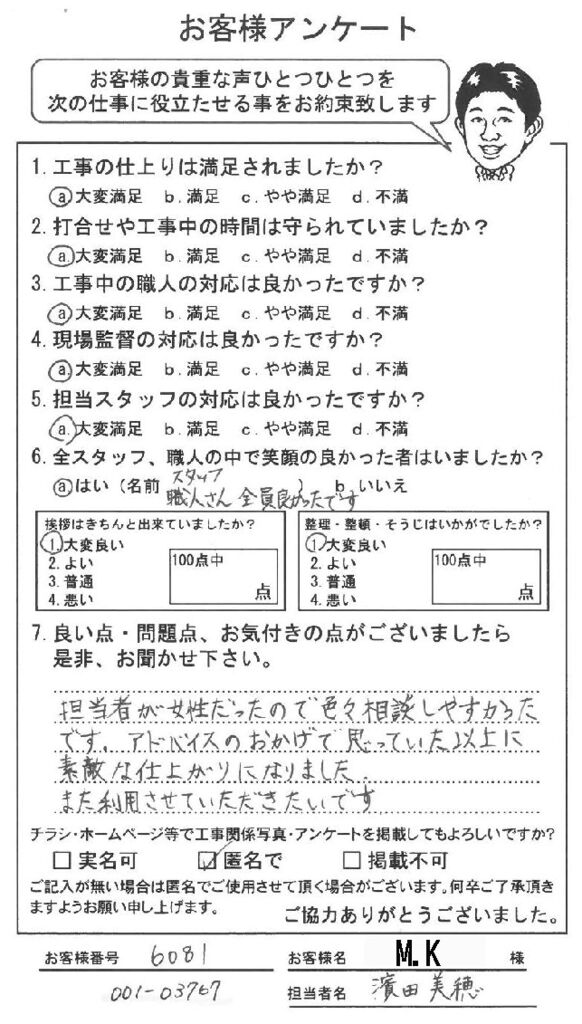 お客様アンケート
お客様の貴重な声ひとつひとつを
次の仕事に役立たせる事をお約束致します
1. 工事の仕上りは満足されましたか？
a. 大変満足 b. 満足 c. やや満足 d. 不満
2. 打合せや工事中の時間は守られていましたか？
a. 大変満足 b. 満足 c. やや満足 d. 不満
3. 工事中の職人の対応は良かったですか？
a. 大変満足 b. 満足 c. やや満足 d. 不満
4. 現場監督の対応は良かったですか？
a. 大変満足 b. 満足 c. やや満足 d. 不満
5. 担当スタッフの対応は良かったですか？
a. 大変満足 b. 満足 c. やや満足 d. 不満
6. 全スタッフ、職人の中で笑顔の良かった者はいましたか？
スタッフ
a はい（名前 職人さん 全員良かったです ） b. いいえ
挨拶はきちんと出来ていましたか？
1. 大変良い
2. よい
3. 普通
4. 悪い
100点中
点
整理・整頓・そうじはいかがでしたか？
1. 大変良い
2. よい
3. 普通
4. 悪い
100点中
点
7. 良い点・問題点、お気付きの点がございましたら
是非、お聞かせ下さい。
担当者が女性だったので色々相談しやすかった
です。アドバイスのおかげで思っていた以上に
素敵な仕上がりになりました。
また利用させていただきたいです
チラシ・ホームページ等で工事関係写真・アンケートを掲載してもよろしいですか？
□ 実名可 ☑ 匿名で □ 掲載不可
ご記入が無い場合は匿名でご使用させて頂く場合がございます。何卒ご了承頂き
ますようお願い申し上げます。
ご協力ありがとうございました。
お客様番号 6081
001-03767
お客様名 M.K 様
担当者名 濱田美穂